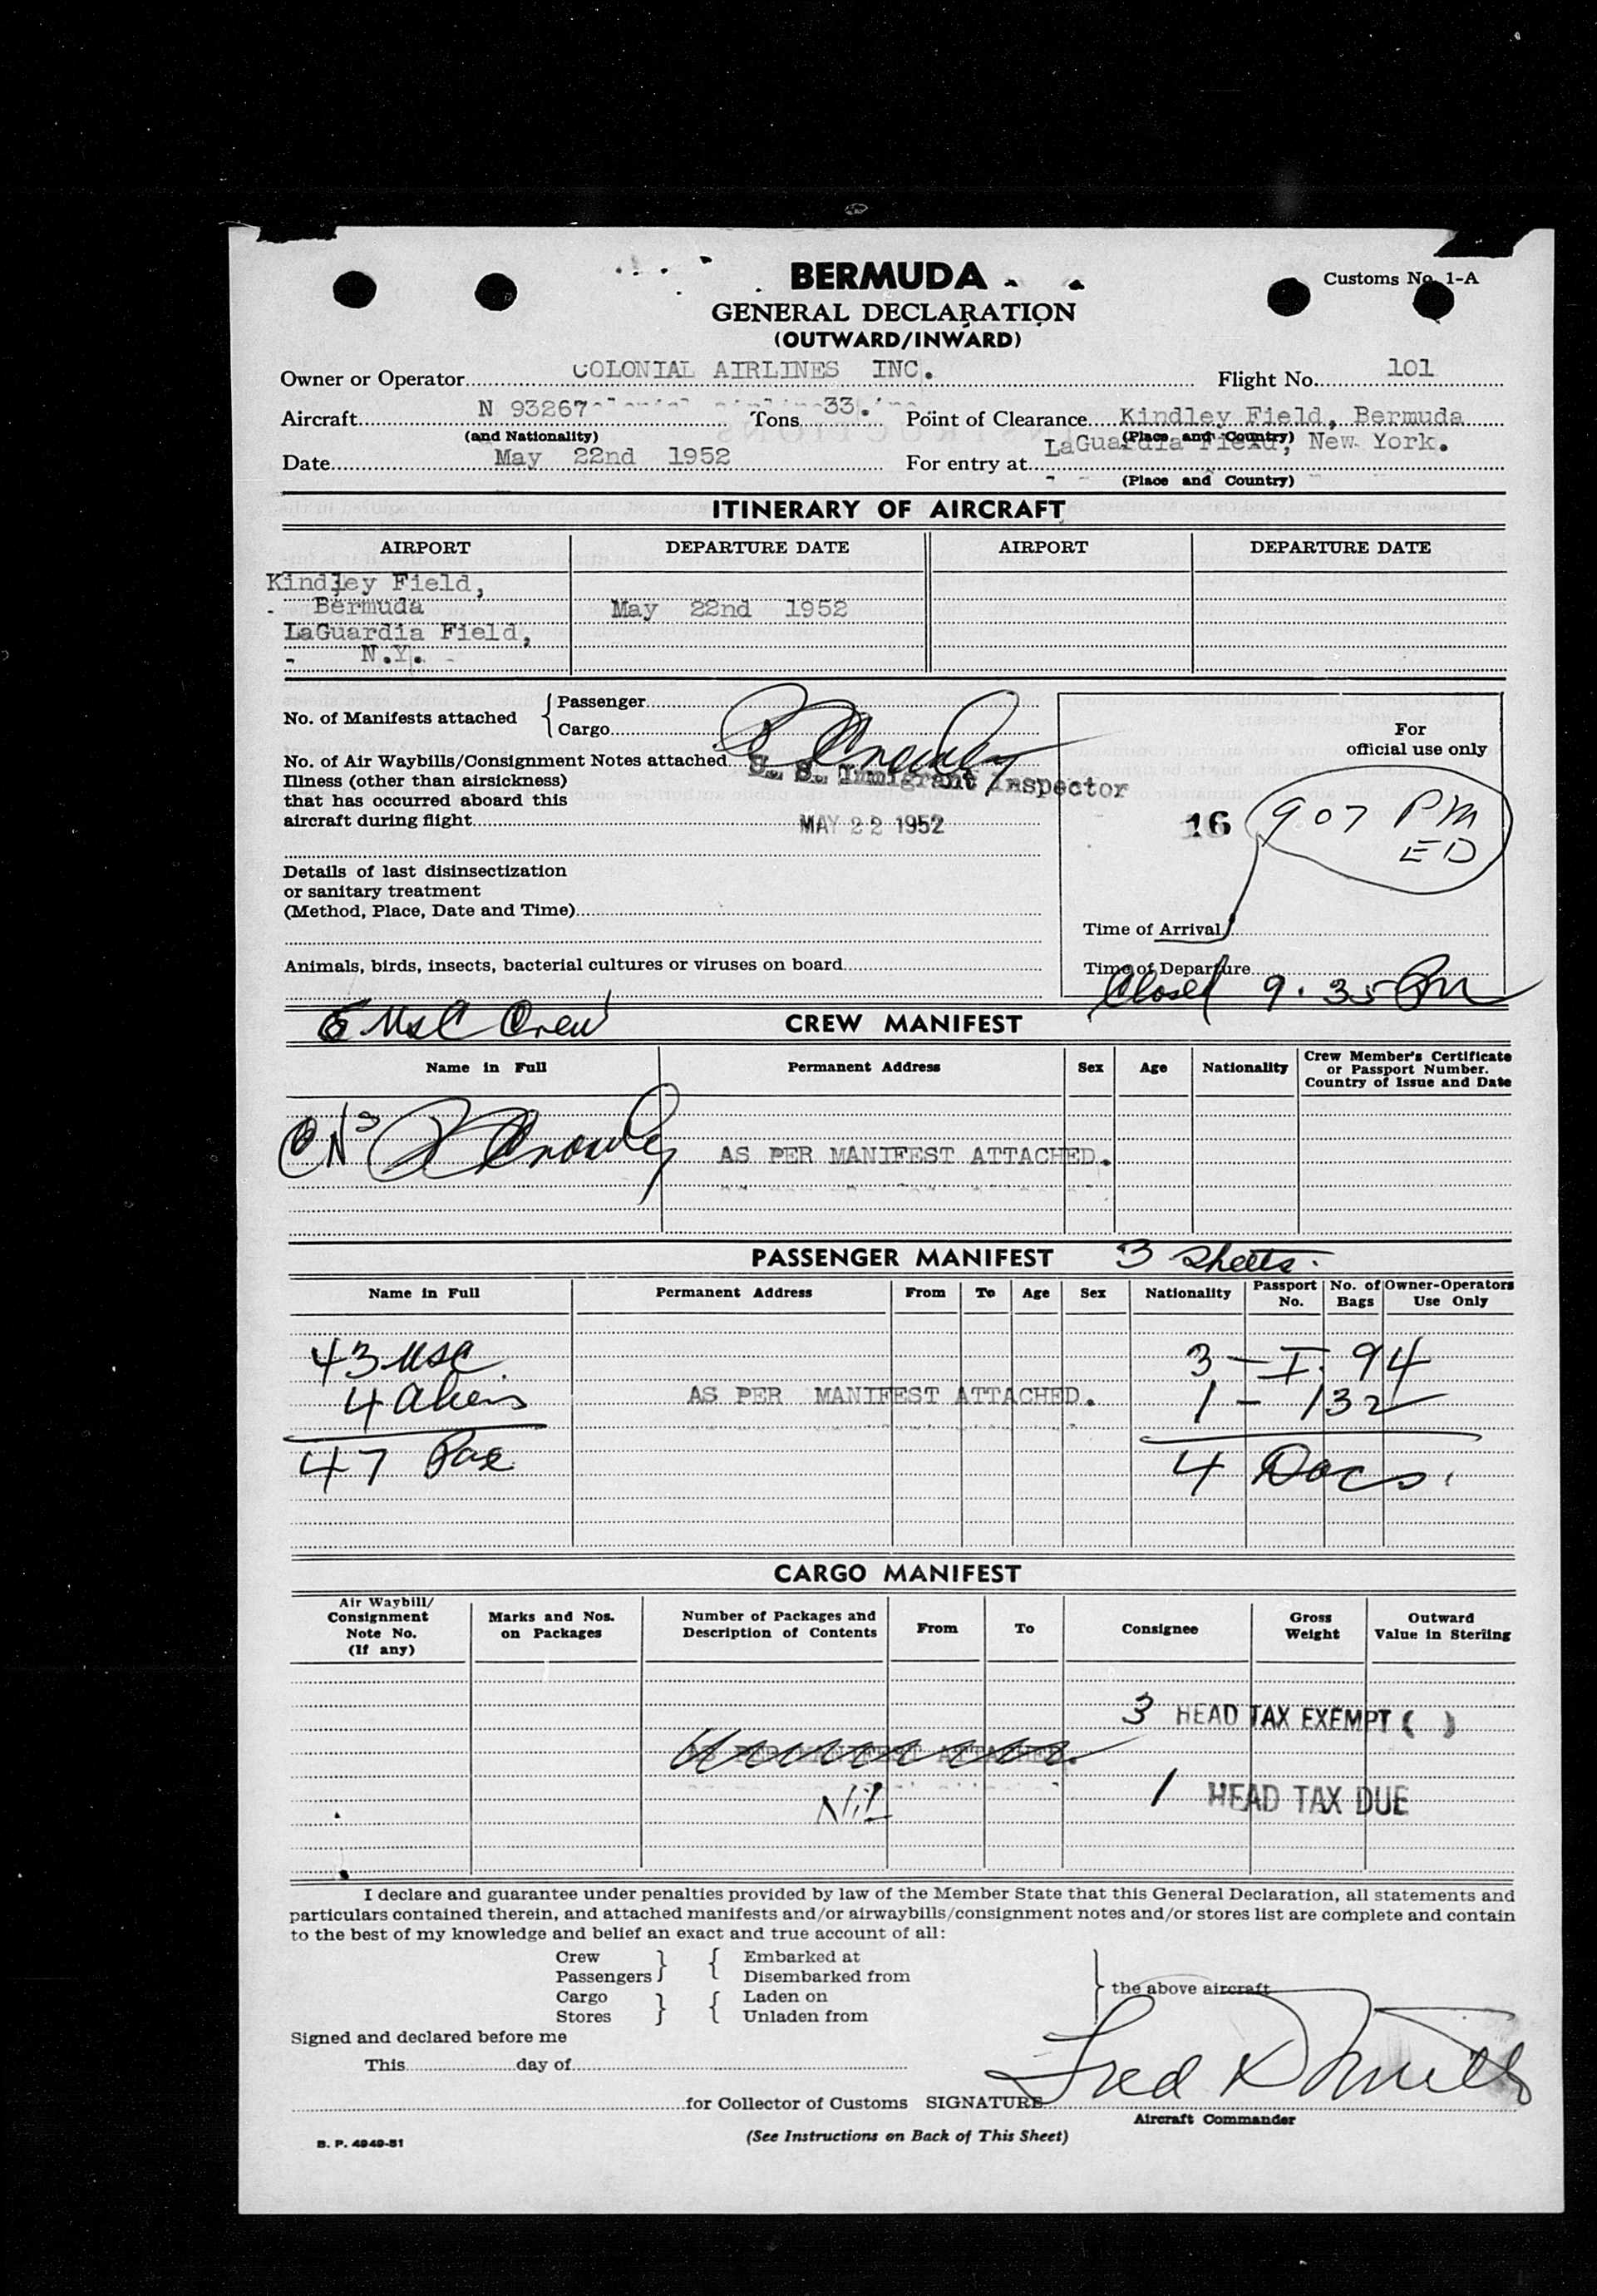 BERMUDA
Customs No. 1-A
GENERAL DECLARATION
(OUTWARD/INWARD)
Owner or Operator COLONIAL AIRLINES INC. Flight No. 101
Aircraft N 93267 Tons 33. Point of Clearance Kindley Field, Bermuda
(and Nationality) (Place and Country)
Date May 22nd 1952 For entry at LaGuardia Field, New York.
(Place and Country)
ITINERARY OF AIRCRAFT
AIRPORT DEPARTURE DATE AIRPORT DEPARTURE DATE
Kindley Field,
Bermuda May 22nd 1952
LaGuardia Field,
N.Y.
No. of Manifests attached { Passenger
Cargo
For
official use only
No. of Air Waybills/Consignment Notes attached
U. S. Immigrant Inspector
Illness (other than airsickness)
that has occurred aboard this
aircraft during flight MAY 22 1952
16 907 PM
ED
Details of last disinsectization
or sanitary treatment
(Method, Place, Date and Time)
Time of Arrival
Animals, birds, insects, bacterial cultures or viruses on board
Time of Departure
Closed 9.35 Pm
Crew
CREW MANIFEST
Name in Full Permanent Address Sex Age Nationality Crew Member's Certificate
or Passport Number.
Country of Issue and Date
AS PER MANIFEST ATTACHED.
PASSENGER MANIFEST 3 Sheets.
Name in Full Permanent Address From To Age Sex Nationality Passport No. No. of Bags Owner-Operators Use Only
43 USC 3 - I. 94
4 Aliens AS PER MANIFEST ATTACHED. 1 - 132
47 Pax 4 Docs.
CARGO MANIFEST
Air Waybill/
Consignment
Note No.
(If any)
Marks and Nos.
on Packages
Number of Packages and
Description of Contents
From To Consignee
Gross
Weight
Outward
Value in Sterling
3 HEAD TAX EXEMPT ( )
AS PER MANIFEST ATTACHED.
Nil 1 HEAD TAX DUE
I declare and guarantee under penalties provided by law of the Member State that this General Declaration, all statements and
particulars contained therein, and attached manifests and/or airwaybills/consignment notes and/or stores list are complete and contain
to the best of my knowledge and belief an exact and true account of all:
Crew } { Embarked at
Passengers Disembarked from
} the above aircraft
Cargo } { Laden on
Stores Unladen from
Signed and declared before me
This day of
Fred
for Collector of Customs SIGNATURE
Aircraft Commander
B. P. 4949-51
(See Instructions on Back of This Sheet)